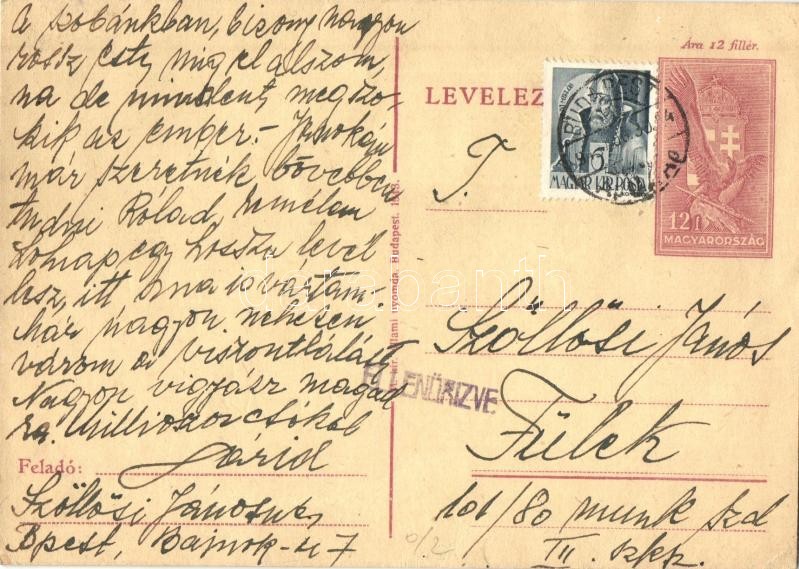 a szobánkban, bizony nagyon
rossz este míg elalszom,
na de mindent megszo-
kik az ember. - Jánoskám
már szeretnék bővebben
tudni Rólad, remélem
holnap egy hosszu levél
lesz itt, ma is vártam.
Már nagyon nehezen
várom a viszontlátást
Nagyon vigyázz magad
ra. Milliószor csókol
Feladó:
Szöllősi Jánosné
Bpest, Bajnok-u 7
Ára 12 fillér.
LEVELEZ
BUDAPEST
6
MAGYAR KIR. POSTA
12 f
MAGYARORSZÁG
T.
Szöllősi János
ELLENŐRIZVE
Fülek
101/80 munk szd
III. szkp.
állami nyomda. Budapest.
darabanth
0/2